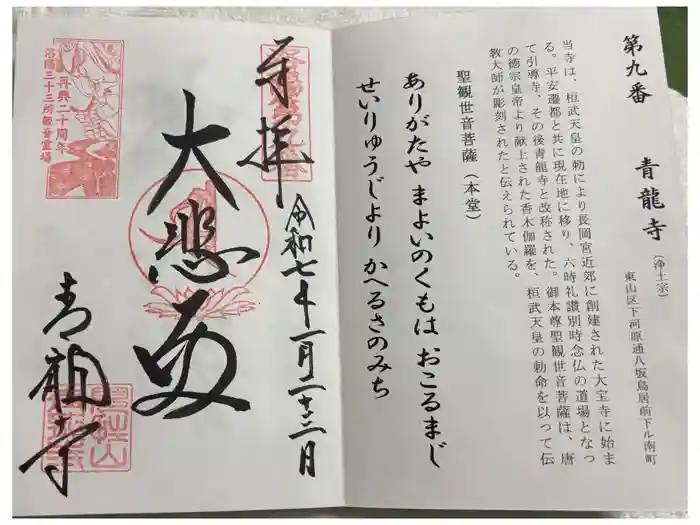 第九番　青龍寺（浄土宗）
東山区下河原通八坂鳥居前下ル南町
当寺は、桓武天皇の勅により長岡宮近郊に創建された大宝寺に始ま
る。平安遷都と共に現在地に移り、六時礼讃別時念仏の道場となっ
て引導寺、その後青龍寺と改称された。御本尊聖観世音菩薩は、唐
の徳宗皇帝より献上された香木伽羅を、桓武天皇の勅命を以って伝
教大師が彫刻されたと伝えられている。
聖観世音菩薩（本堂）
ありがたや まよいのくもは おこるまじ
せいりゅうじより かへるさのみち
奉拝
令和七年一月二十三日
大悲殿
青龍寺
再興二十周年
洛陽三十三所観音霊場